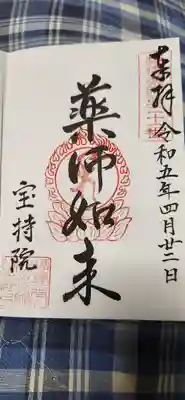 奉拝 令和五年四月廿二日
薬師如来
宝持院